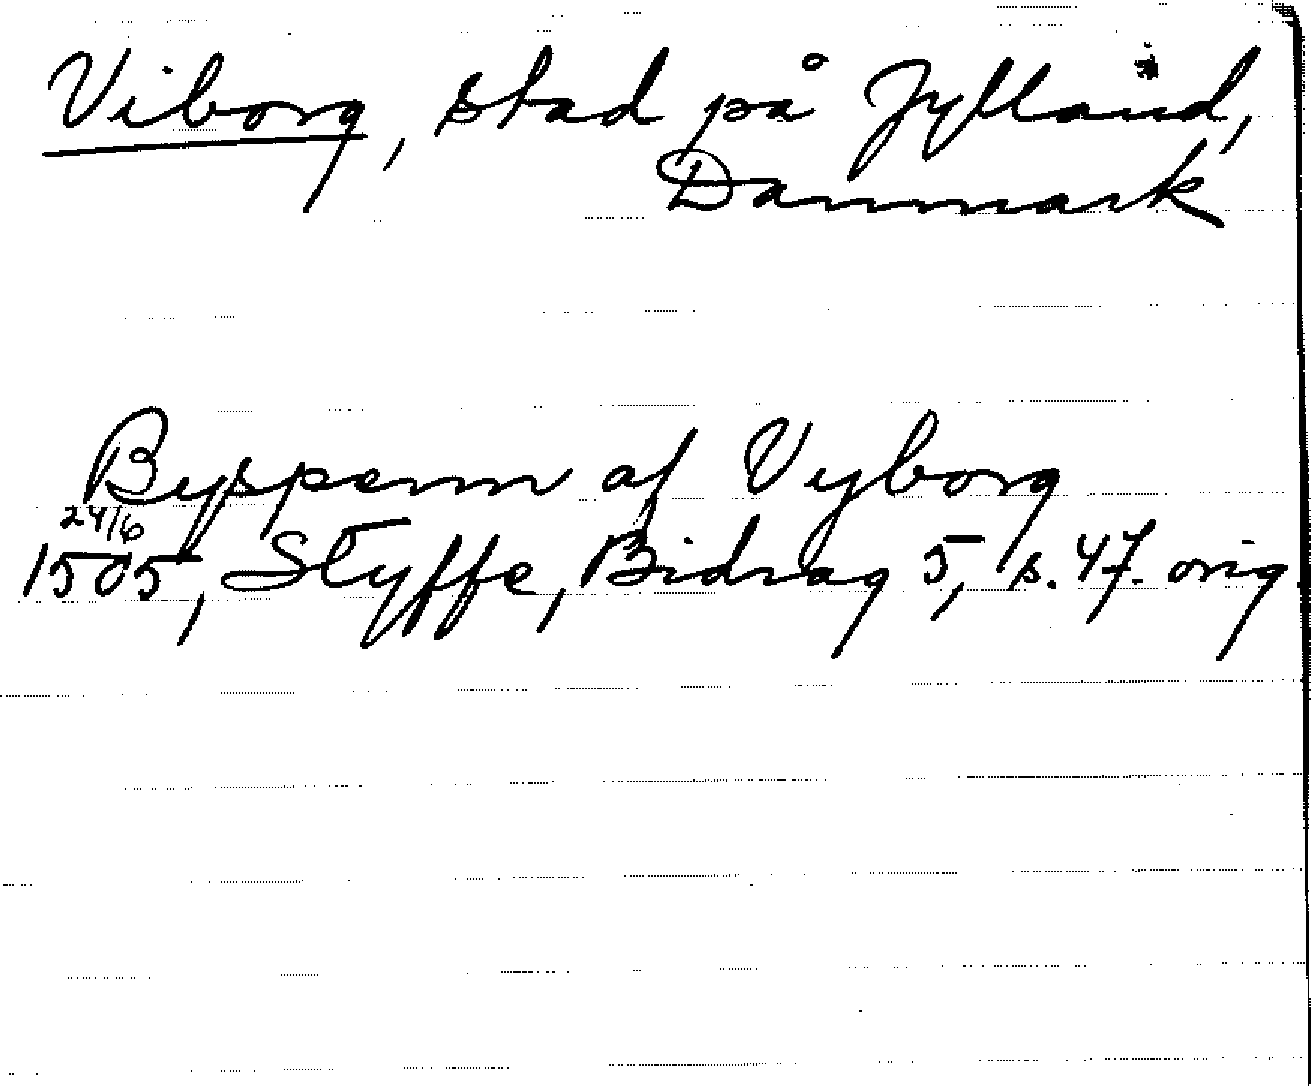 Viborg, stad på Jylland,
Danmark
Byspenn af Vyborg
24/6
1505, Styffe, Bidrag 5, s. 47. orig